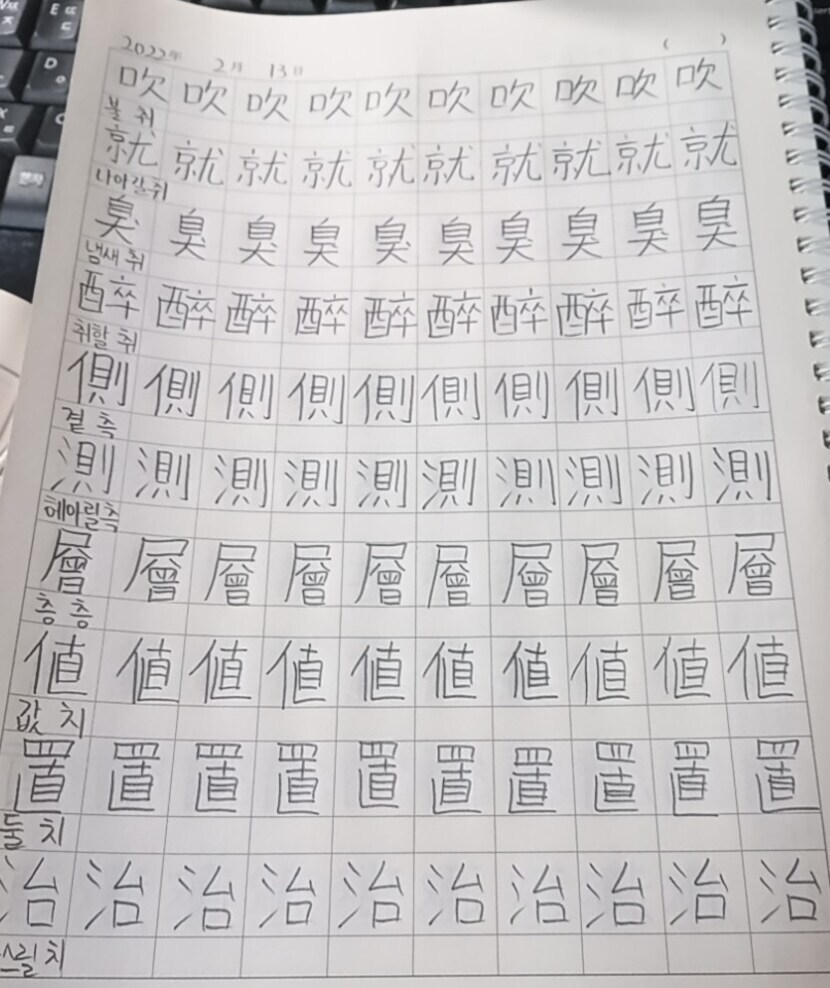 2022年 2月 13日 ( )
吹 吹 吹 吹 吹 吹 吹 吹 吹 吹
불 취
就 就 就 就 就 就 就 就 就 就
나아갈 취
臭 臭 臭 臭 臭 臭 臭 臭 臭 臭
냄새 취
醉 醉 醉 醉 醉 醉 醉 醉 醉 醉
취할 취
側 側 側 側 側 側 側 側 側 側
곁 측
測 測 測 測 測 測 測 測 測 測
헤아릴 측
層 層 層 層 層 層 層 層 層 層
층 층
値 値 値 値 値 値 値 値 値 値
값 치
置 置 置 置 置 置 置 置 置 置
둘 치
治 治 治 治 治 治 治 治 治 治
스릴 치